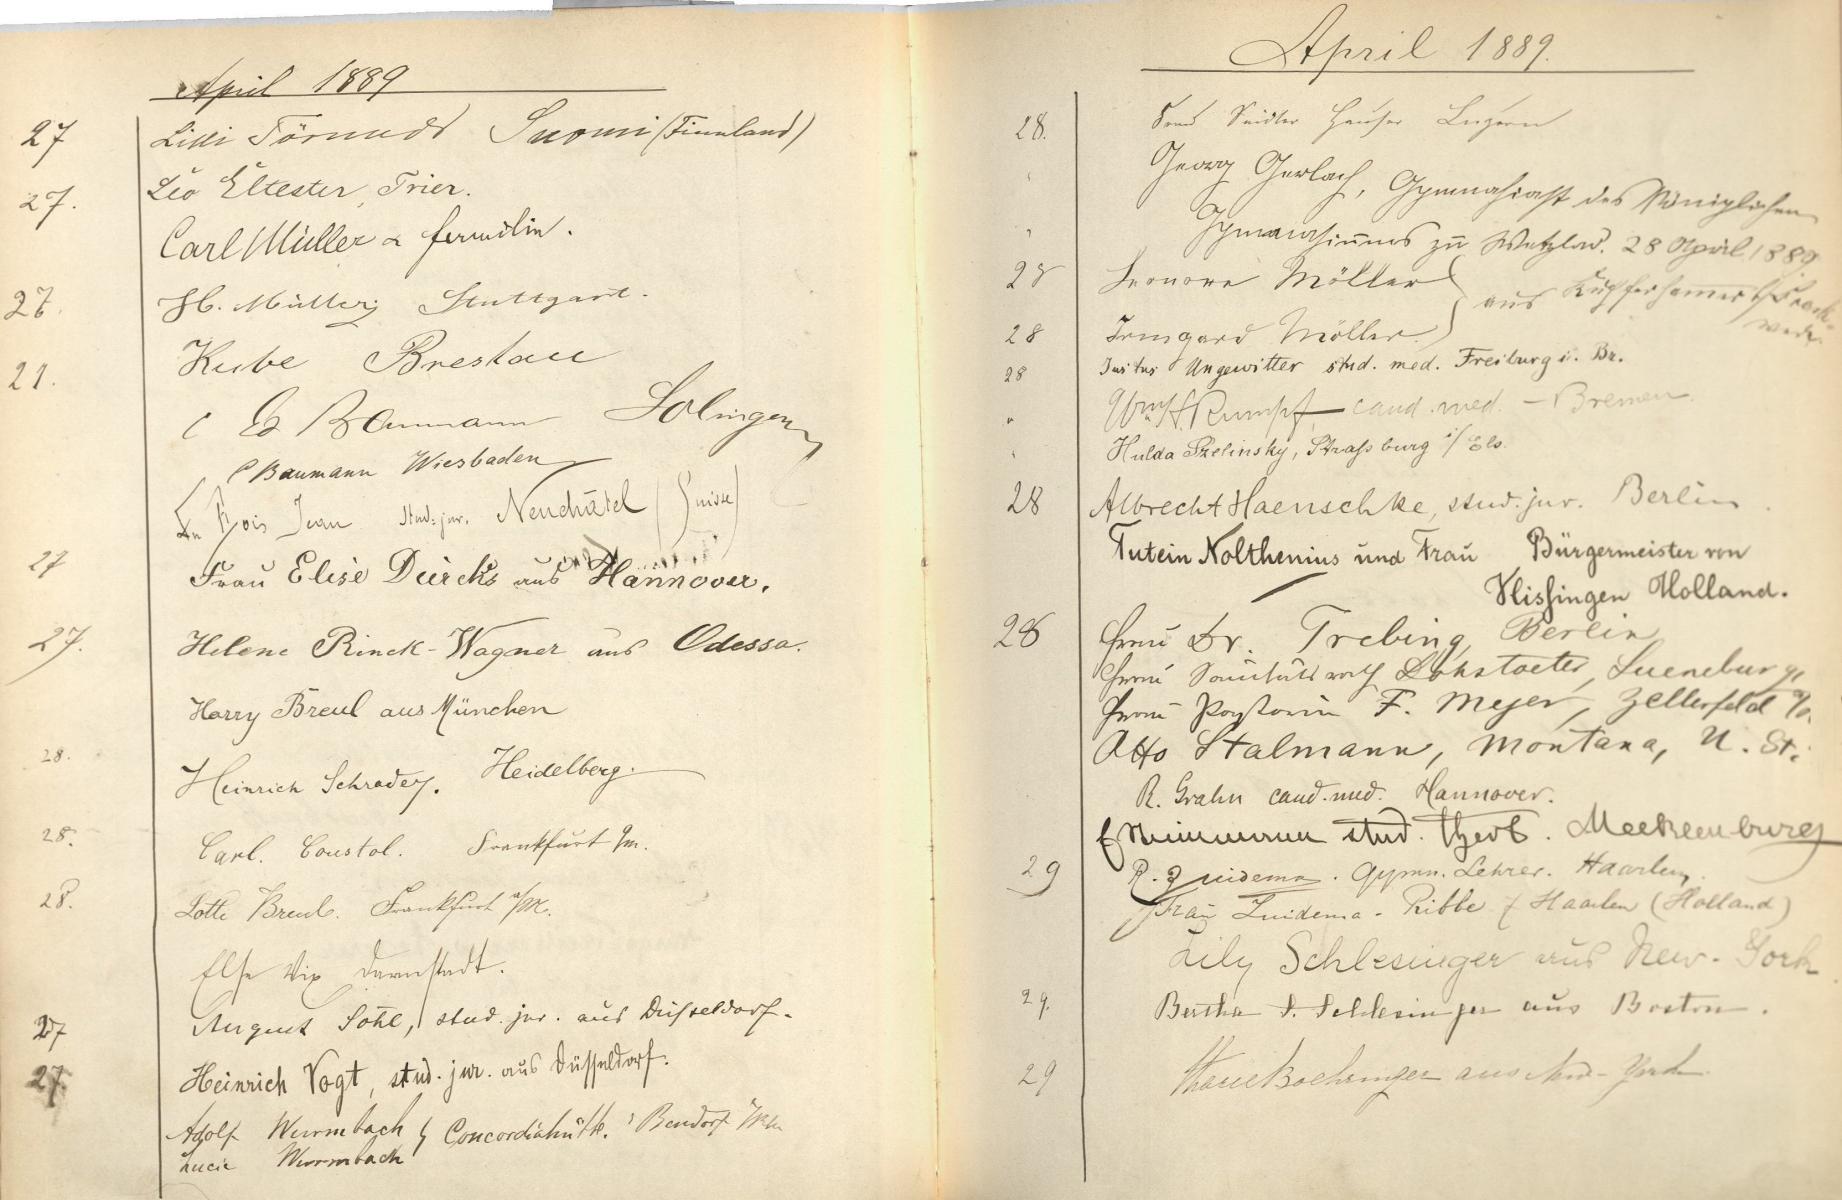 April 1889
27 Lilli Törnudd Suomi (Finnland)
27. Leo Eltester, Trier.
Carl Müller & familin.
27. H. Müller, Stuttgart.
21. Kube Breslau
Baumann Solingen
C Baumann Wiesbaden
Jean stud. jur. Neuchâtel (Suisse)
27 Frau Elise Duercks aus Hannover.
27. Helene Rinck-Wagner aus Odessa.
Harry Breul aus München
28. Heinrich Schrader. Heidelberg.
28. Carl. Coustol. Frankfurt a/m.
28. Lotte Breul. Frankfurt a/M.
Else Vix Darmstadt.
27 August Sohl, stud. jur. aus Düsseldorf.
27. Heinrich Vogt, stud. jur. aus Düsseldorf.
Adolf Wurmbach Concordiahütte. Bendorf
Lucie Wurmbach
April 1889.
28. Hauser Luzern
" Georg Gerlach, Gymnasiast des Königlichen
" Gymnasiums zu Wetzlar. 28 April 1889.
28 Leonore Möller } aus Kupferhammer b/Brack-
wede.
28 Irmgard Möller.
28 Justus Ungewitter stud. med. Freiburg i. Br.
" Wm. H. Rumpf cand. med. – Bremen.
" Hulda Przelinsky, Straßburg i/Els.
28 Albrecht Haenschke, stud. jur. Berlin.
Tutein Nolthenius und Frau Bürgermeister von
Vlissingen Holland.
28 Frau Dr. Trebing, Berlin
Frau Sanitätsrath Lohstoeter, Lueneburg,
Frau Pastorin F. Meyer, Zellerfeld a/H.
Otto Stalmann, Montana, U. St.
R. Grahn cand. med. Hannover.
stud. theol. Mecklenburg
29 R. Zuidema. Gymn. Lehrer. Haarlem.
Frau Zuidema-Ribbe Haarlem (Holland)
Lily Schlesinger aus New-York
29. Bertha S. Schlesinger aus Boston.
29 Marie Boehringer aus New-York